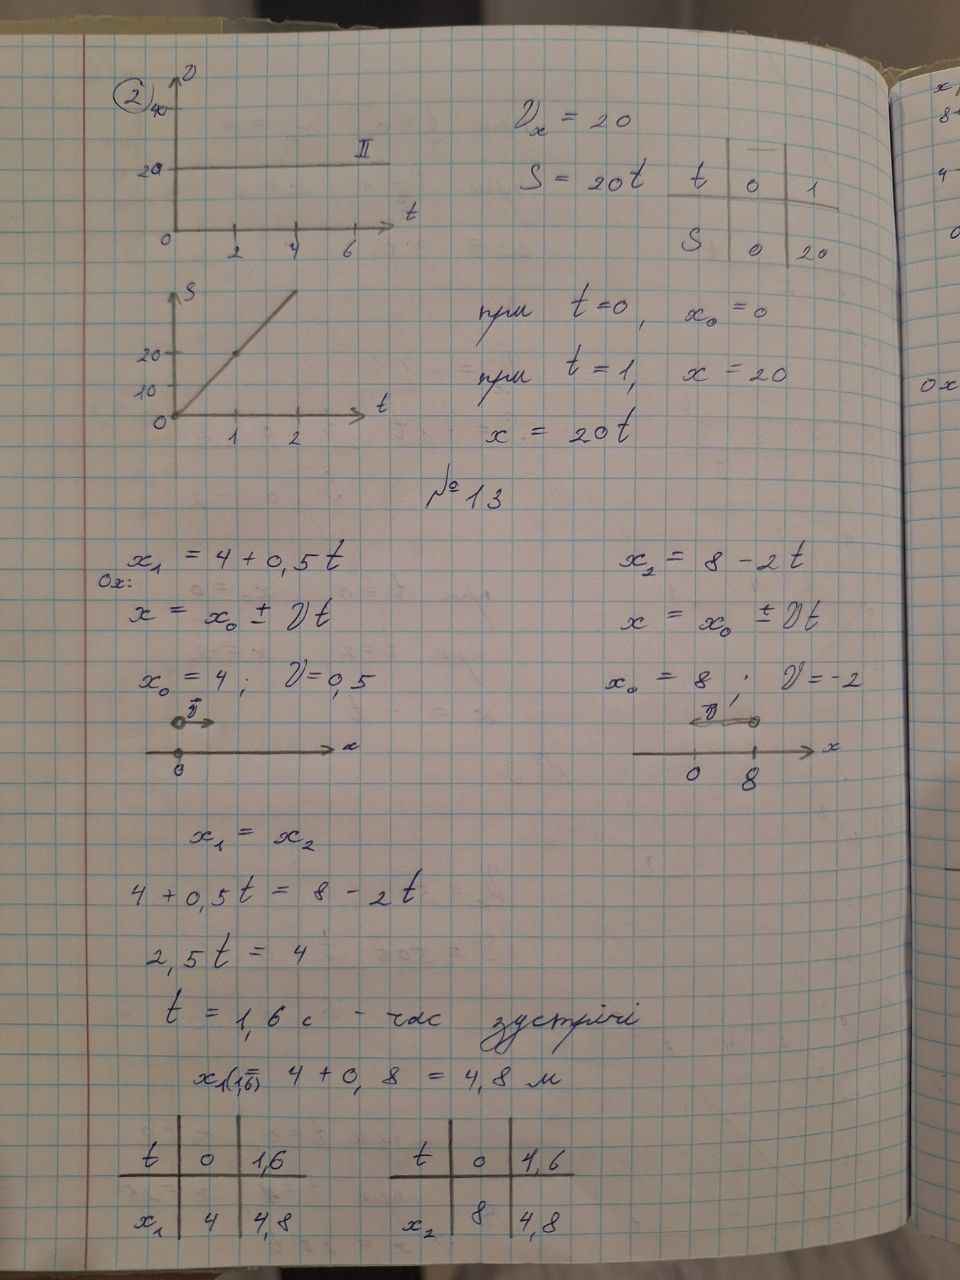 2
v
40
20
II
0 2 4 6 t
Vx = 20
S = 20t
t 0 1
S 0 20
S
20
10
0 1 2 t
при t=0, x₀ = 0
при t = 1, x = 20
x = 20t
№13
x₁ = 4 + 0,5t
x₂ = 8 - 2t
Ox:
x = x₀ ± Vt
x = x₀ ± Vt
x₀ = 4; V = 0,5
x₀ = 8; V = -2
v⃗
v⃗
0 x
0 8 x
x₁ = x₂
4 + 0,5t = 8 - 2t
2,5t = 4
t = 1,6 с - час зустрічі
x₁(1,6) = 4 + 0,8 = 4,8 м
t 0 1,6
x₁ 4 4,8
t 0 1,6
x₂ 8 4,8
x,
8
4
0
Ox